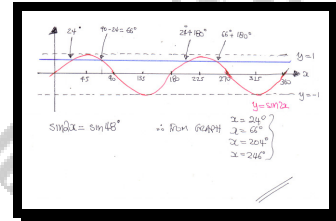 24° 90-24=66° 24°+180° 66°+180°
y=1
x
45 90 135 180 225 270 315 360
y=-1
y=sin2x
sin2x = sin48° ∴ FROM GRAPH x=24°
x=66°
x=204°
x=246°